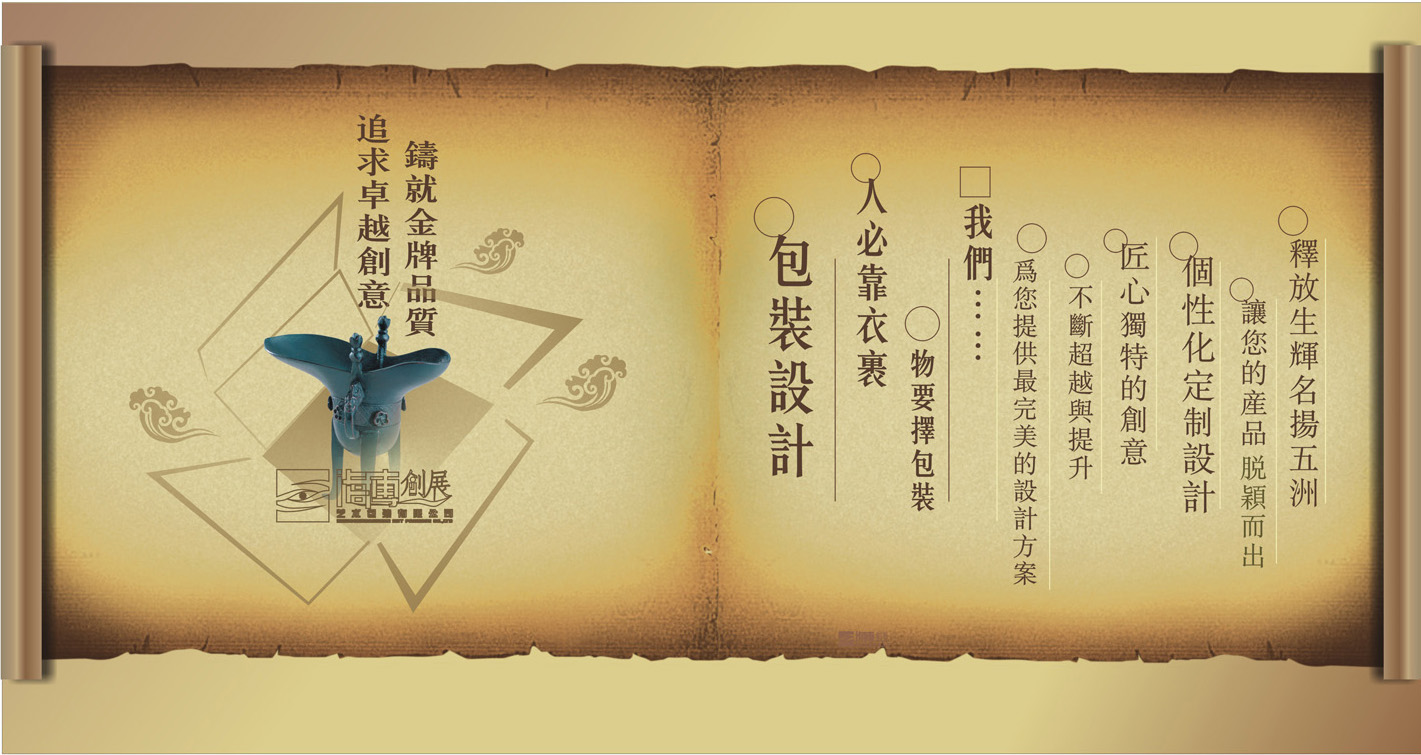 追求卓越創意
鑄就金牌品質
創展
包裝設計
人必靠衣裹
物要擇包裝
我們……
爲您提供最完美的設計方案
不斷超越與提升
匠心獨特的創意
個性化定制設計
讓您的産品 脱穎而出
釋放生輝名揚五洲